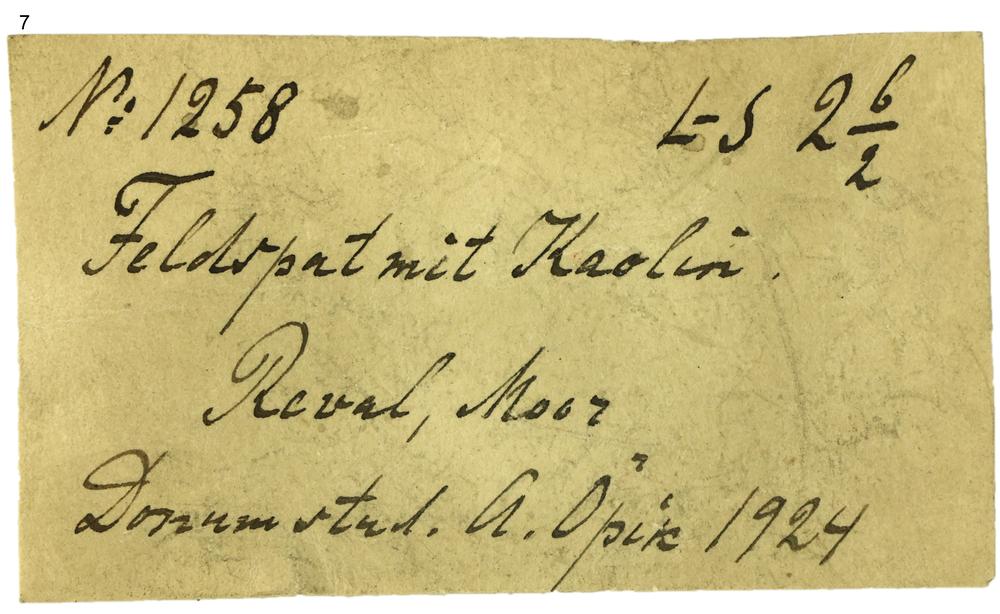 7
No: 1258 L-S 2 6/2
Feldspat mit Kaolin.
Reval, Moor
Donum stud. A. Öpik 1924